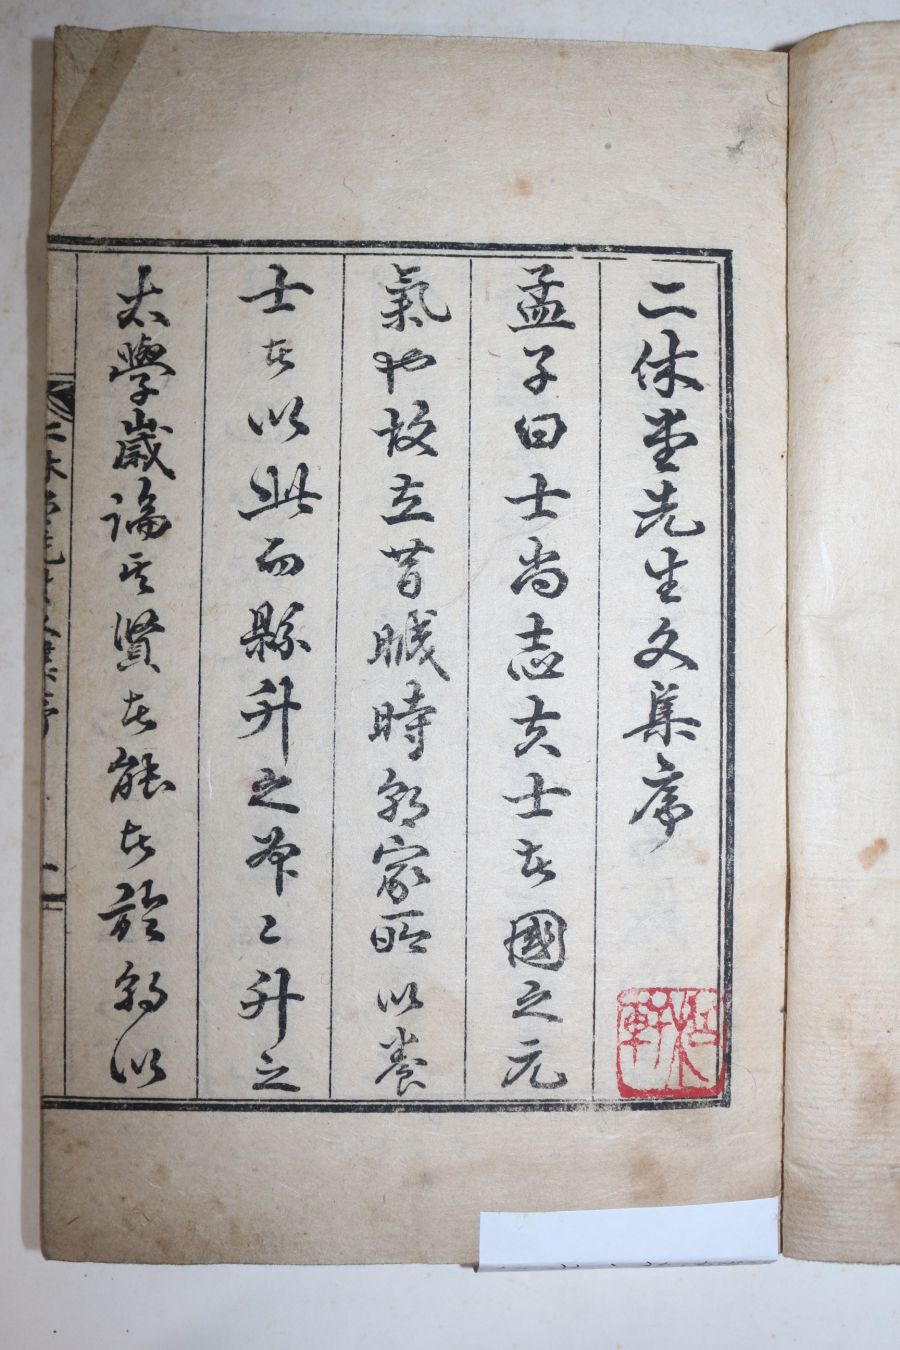 二休堂先生文集序
孟子曰士尚志夫士者國之元
氣也故在昔盛時朝家所以養
士者以此而縣升之州々升之
太學歲論其賢者能者於朝以
二休堂先生文集序